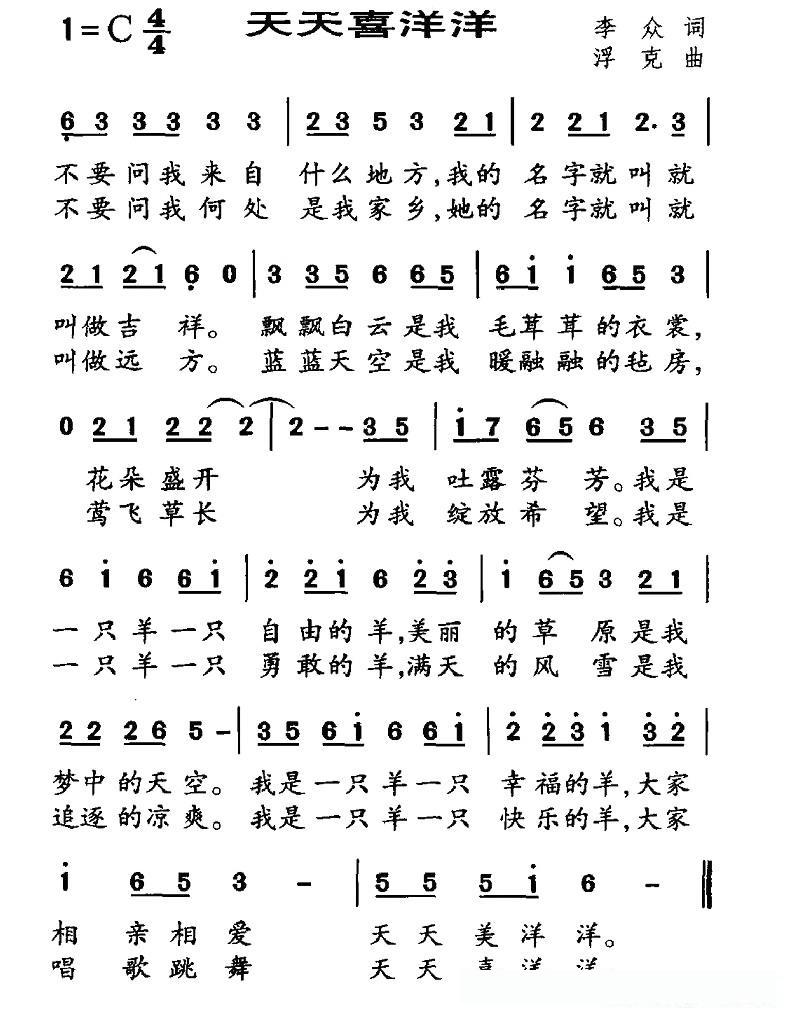 1=C 4/4 天天喜洋洋 李众词
浮克曲
6 3 3 3 3 3 | 2 3 5 3 2 1 | 2 2 1 2· 3 |
不要问我来自 什么地方,我的 名字就叫就
不要问我何处 是我家乡,她的 名字就叫就
2 1 2 1 6 0 | 3 3 5 6 6 5 | 6 i i 6 5 3 |
叫做吉祥。 飘飘白云是我 毛茸茸的衣裳,
叫做远方。 蓝蓝天空是我 暖融融的毡房,
0 2 1 2 2 2 | 2 - - 3 5 | i 7 6 5 6 3 5 |
花朵盛开 为我 吐露芬芳。我是
莺飞草长 为我 绽放希望。我是
6 i 6 6 i | 2 2 i 6 2 3 | i 6 5 3 2 1 |
一只羊一只 自由的羊,美丽 的草原是我
一只羊一只 勇敢的羊,满天 的风雪是我
2 2 2 6 5 - | 3 5 6 i 6 6 i | 2 2 3 i 3 2 |
梦中的天空。我是一只羊一只 幸福的羊,大家
追逐的凉爽。我是一只羊一只 快乐的羊,大家
i 6 5 3 - | 5 5 5 i 6 - ‖
相亲相爱 天天美洋洋。
唱歌跳舞 天天喜洋洋